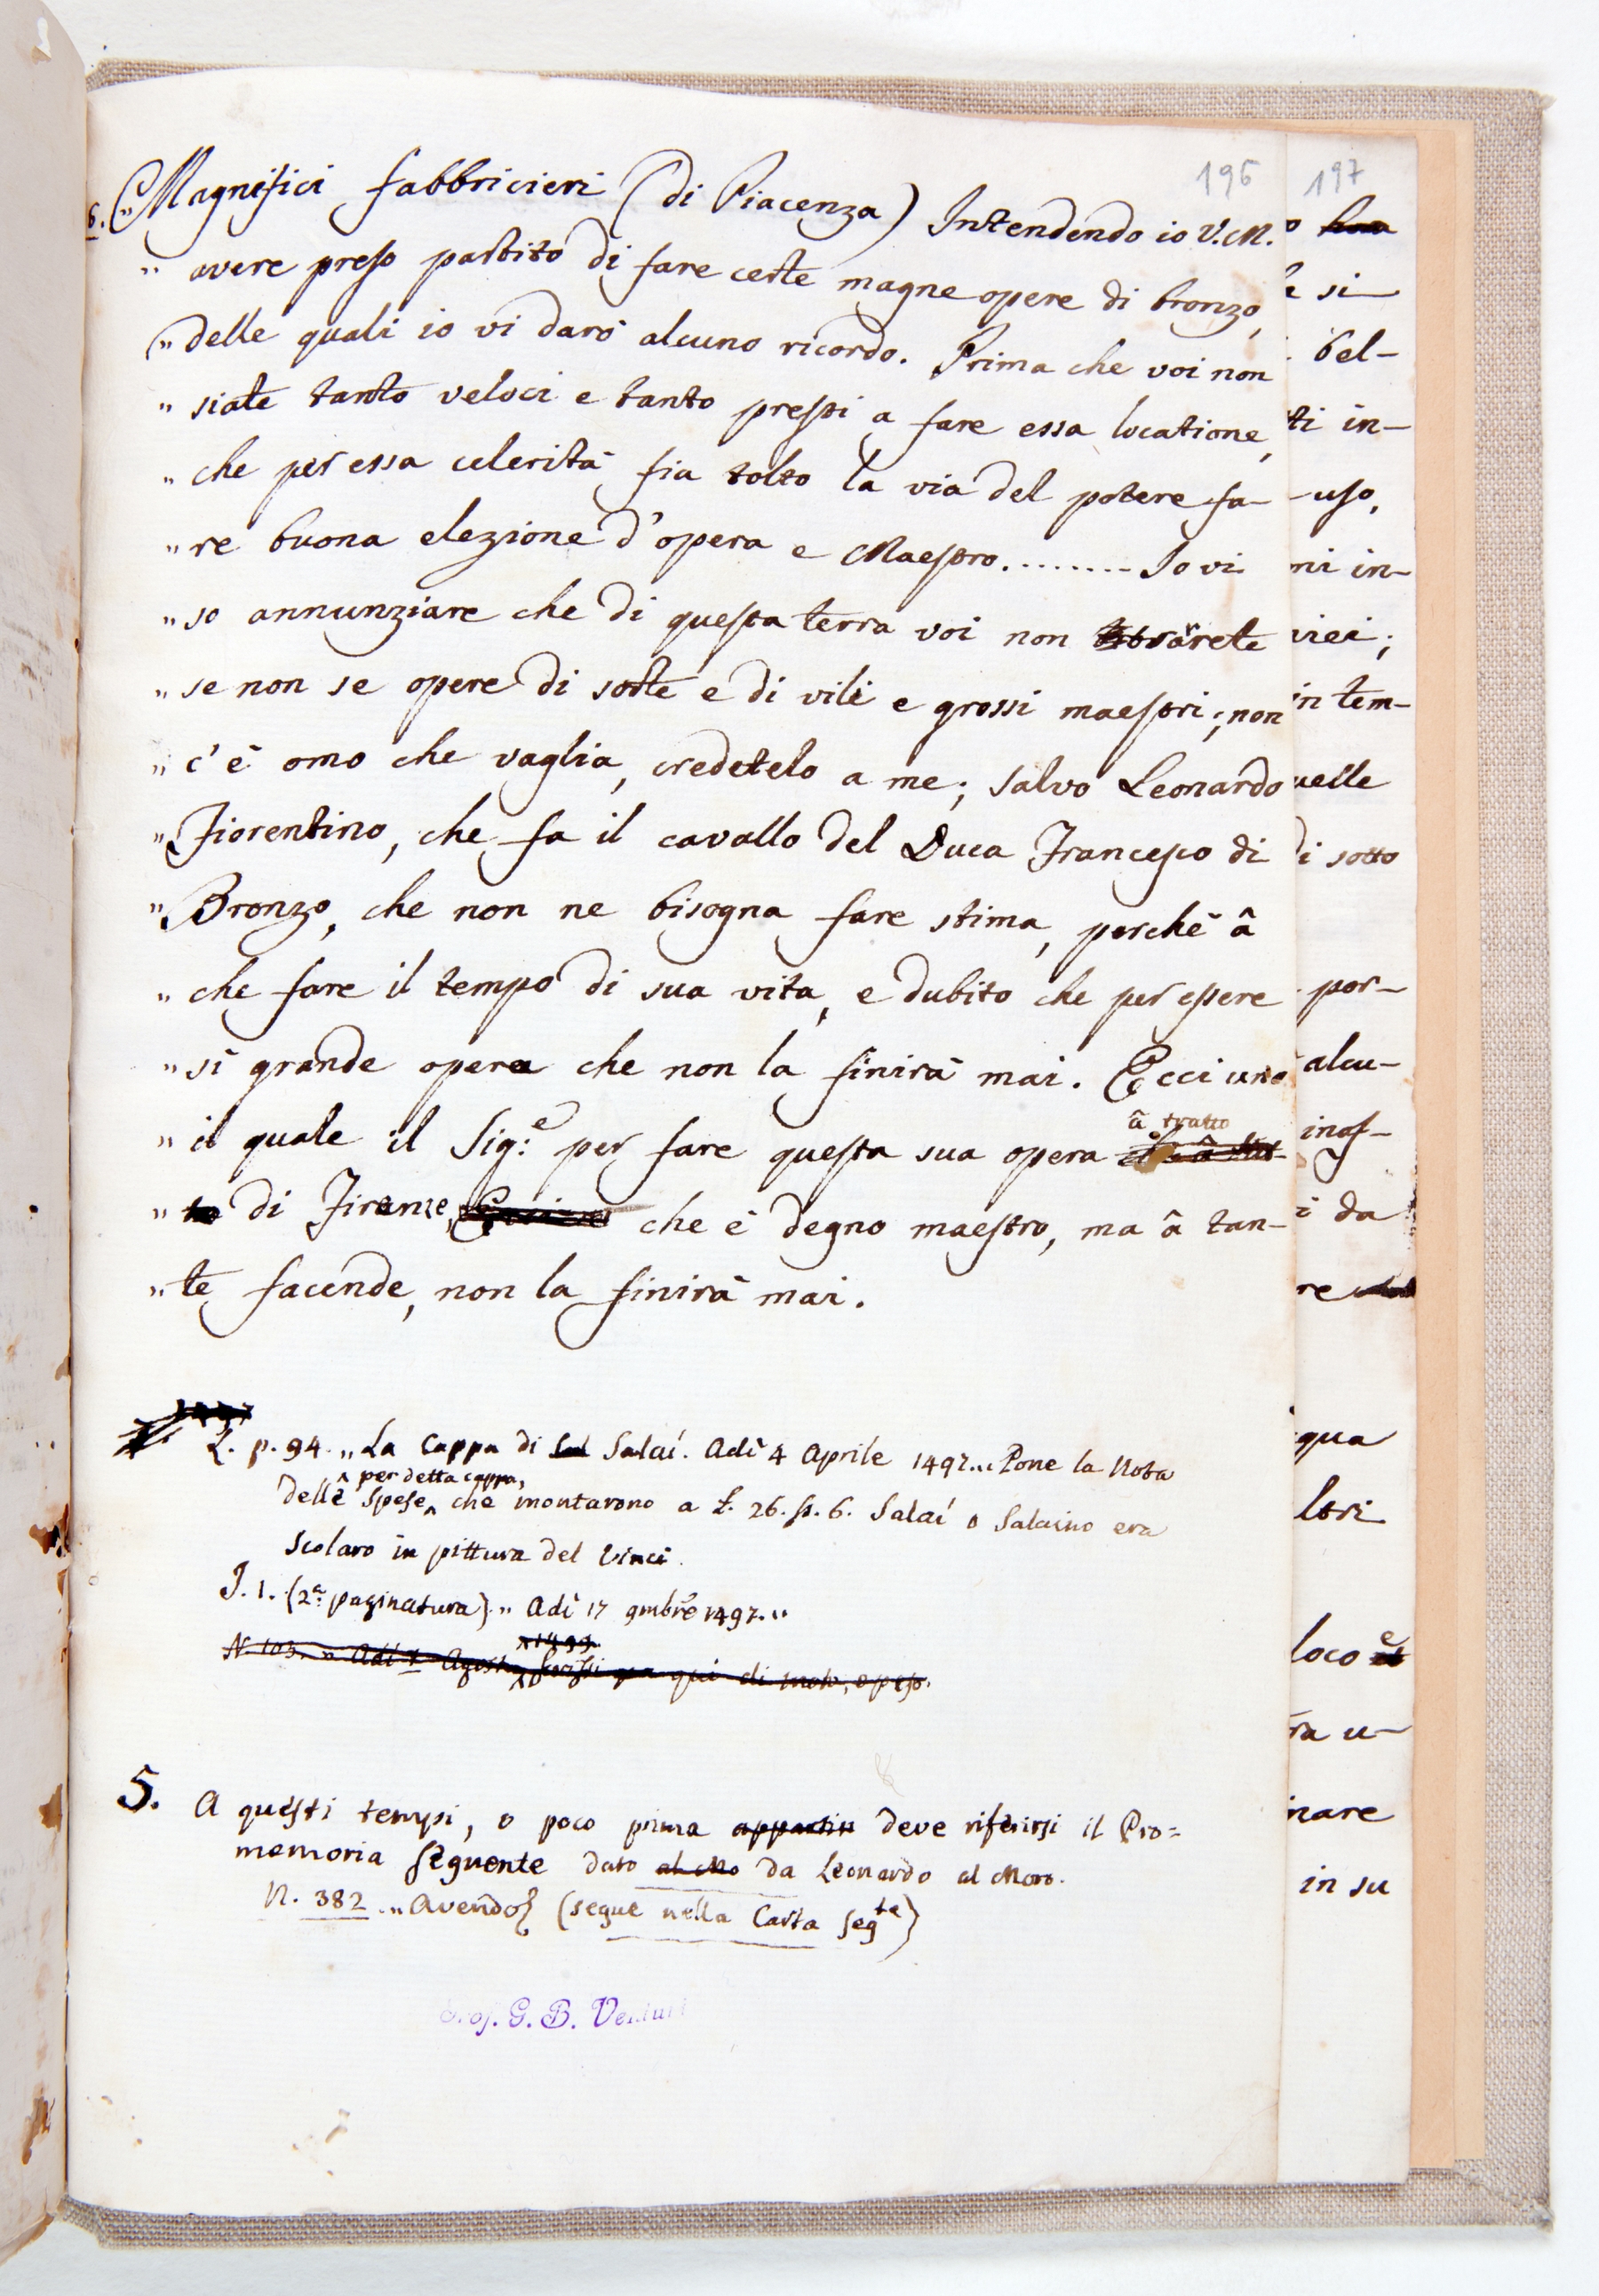 196
197
6. „ Magnifici fabbricieri (di Piacenza) Intendendo io V.M.
„ avere preso partito di fare certe magne opere di bronzo,
„ delle quali io vi darò alcuno ricordo. Prima che voi non
„ siate tanto veloci e tanto presti a fare essa locatione,
„ che per essa celerità sia tolto la via del potere fa-
„ re buona elezione d'opera e Maestro......... Io vi
„ so annunziare che di questa terra voi non trarrete
„ se non se opere di sorte e di vili e grossi maestri; non
„ c'è omo che vaglia, credetelo a me; salvo Leonardo
„ Fiorentino, che fa il cavallo del Duca Francesco di
„ Bronzo, che non ne bisogna fare stima, perchè â
„ che fare il tempo di sua vita, e dubito che per essere
„ sì grande opera che non la finirà mai. Ecci uno
â tratto
„ il quale il Sig:e per fare questa sua opera
„ di Firenze, che è degno maestro, ma â tan-
„ te facende, non la finirà mai.
L. p. 94. „ La Cappa di Salaí. Adì 4 Aprile 1497... Pone la Nota
per detta cappa,
delle spese che montarono a £. 26. s. 6. Salaí o Salaino era
scolaro in pittura del Vinci.
I. 1. (2a: paginatura). „ Adì 17 9mbre 1497. „
1499.
N. 103. „ Adì 1 Agosto scrissi qui di moto, e peso.
5. A questi tempi, o poco prima deve riferirsi il Pro=
memoria seguente dato da Leonardo al Moro.
N. 382 „ Avendo (segue nella Carta segte)
Prof. G. B. Venturi
si
bel-
ti in-
uso,
ni in-
viei;
in tem-
uelle
di sotto
por-
alcu-
inas-
i da
re
qua
ltri
loco e
ra u-
nare
in su